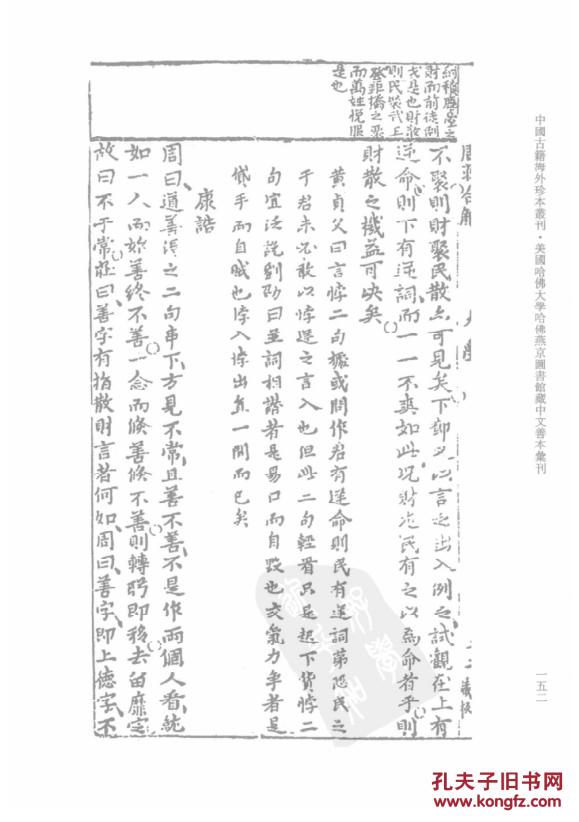 中國古籍海外珍本叢刊·美國哈佛大學哈佛燕京圖書館藏中文善本彙刊
一五二
財而前徒倒
戈是也財散
則民聚武王
發鉅橋之粟
而萬姓悅服
是也
不聚則財聚民散亦可見矣下節又以言之出入例之試觀在上有
逆命則下有逆詞而一一不爽如此況財適民有之以為命者乎則
財散之機益可決矣
黃貞父曰言悖二句據或問作君有逆命則民有逆詞第恐民之
于君未必敢以悖逆之言入也但此二句輕看只是起下貨悖二
句宜泛說劉劭曰至詞相譖者是易口而自毀也交氣力爭者是
貸手而自賊也悖入悖出直一間而已矣
康誥
周曰道善得之二句串下方見不常且善不善不是作兩個人看統
如一人而始善終不善一念而倏善倏不善則轉盻即移去留靡定
故曰不于常 曰善字有指散財言者何如周曰善字即上德字不
孔夫子旧书网
www.kongfz.com